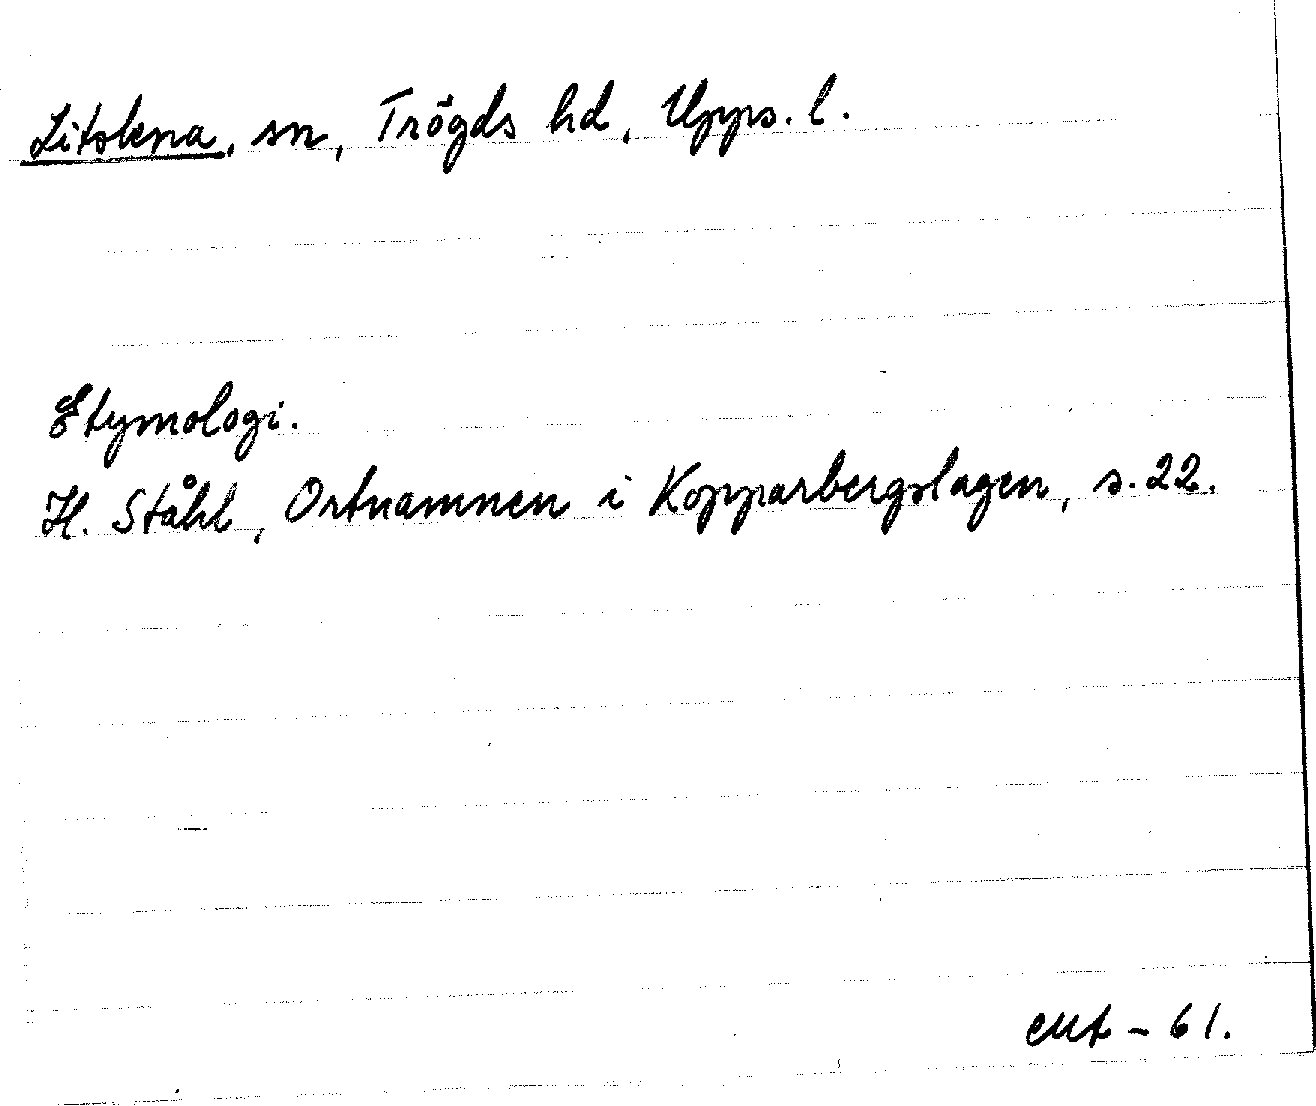 Litslena, sn, Trögds hd, Upps. l.
Etymologi.
H. Ståhl, Ortnamnen i Kopparbergslagen, s. 22.
- 61.